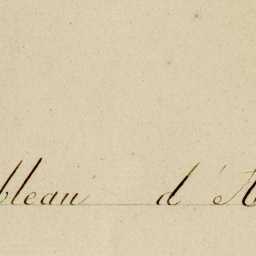 bleau d'A